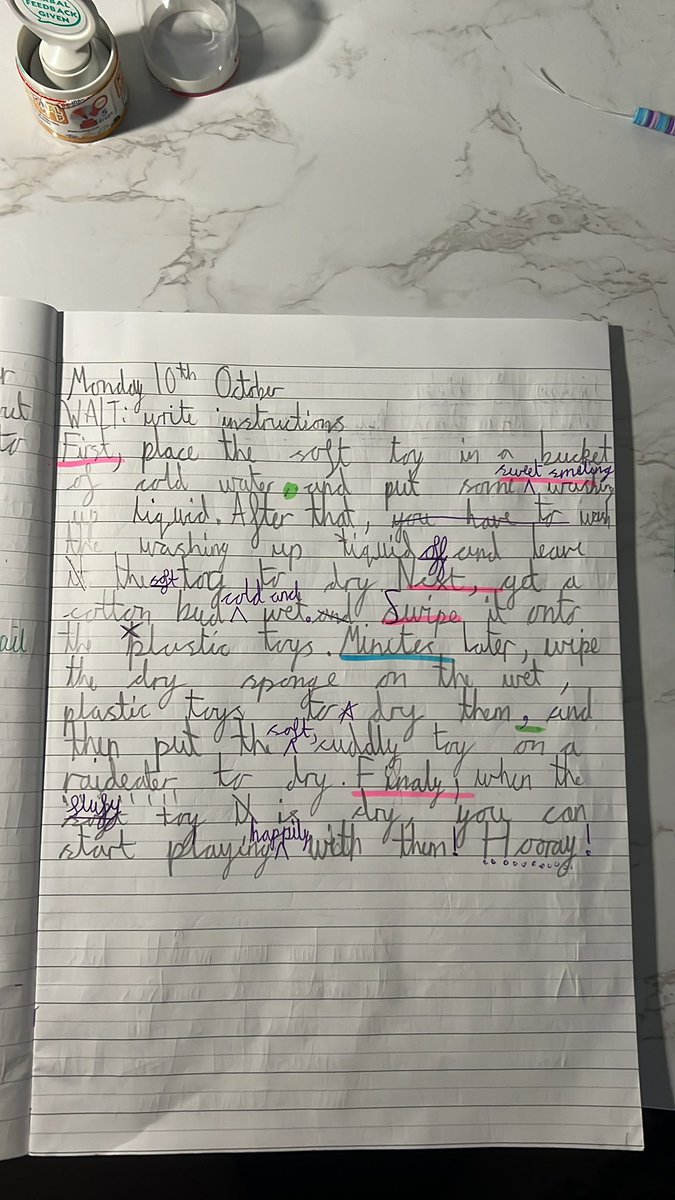 VERBAL
FEEDBACK
GIVEN
Monday 10th October
WALT: write instructions
First, place the soft toy in a bucket
of cold water, and put some sweet smelling washing
up liquid. After that, you have to wash
the washing up liquid off and leave
it the soft toy to dry Next, get a
cotton bud cold and wet. and Swipe it onto
the plastic toys. Minutes later, wipe
the dry sponge on the wet,
plastic toys to dry them, and
then put the soft, cuddly toy on a
raideater to dry. Finaly, when the
soft flufy toy is dry, you can
start playing happily with them! Hooray!